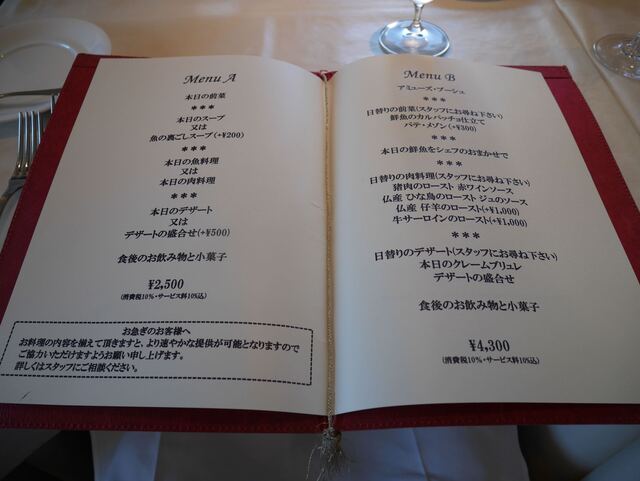 Menu A
本日の前菜
***
本日のスープ
又は
魚の裏ごしスープ(+¥200)
***
本日の魚料理
又は
本日の肉料理
***
本日のデザート
又は
デザートの盛合せ(+¥500)
食後のお飲み物と小菓子
¥2,500
(消費税10%・サービス料10%込)
お急ぎのお客様へ
お料理の内容を揃えて頂きますと、より速やかな提供が可能となりますので
ご協力いただけますようお願い申し上げます。
詳しくはスタッフにご相談ください。
Menu B
アミューズ・ブーシュ
***
日替りの前菜(スタッフにお尋ね下さい)
鮮魚のカルパッチョ仕立て
パテ・メゾン(+¥300)
***
本日の鮮魚をシェフのおまかせで
***
日替りの肉料理(スタッフにお尋ね下さい)
猪肉のロースト 赤ワインソース
仏産 ひな鳥のロースト ジュのソース
仏産 仔羊のロースト(+¥1,000)
牛サーロインのロースト(+¥1,000)
***
日替りのデザート(スタッフにお尋ね下さい)
本日のクレームブリュレ
デザートの盛合せ
食後のお飲み物と小菓子
¥4,300
(消費税10%・サービス料10%込)